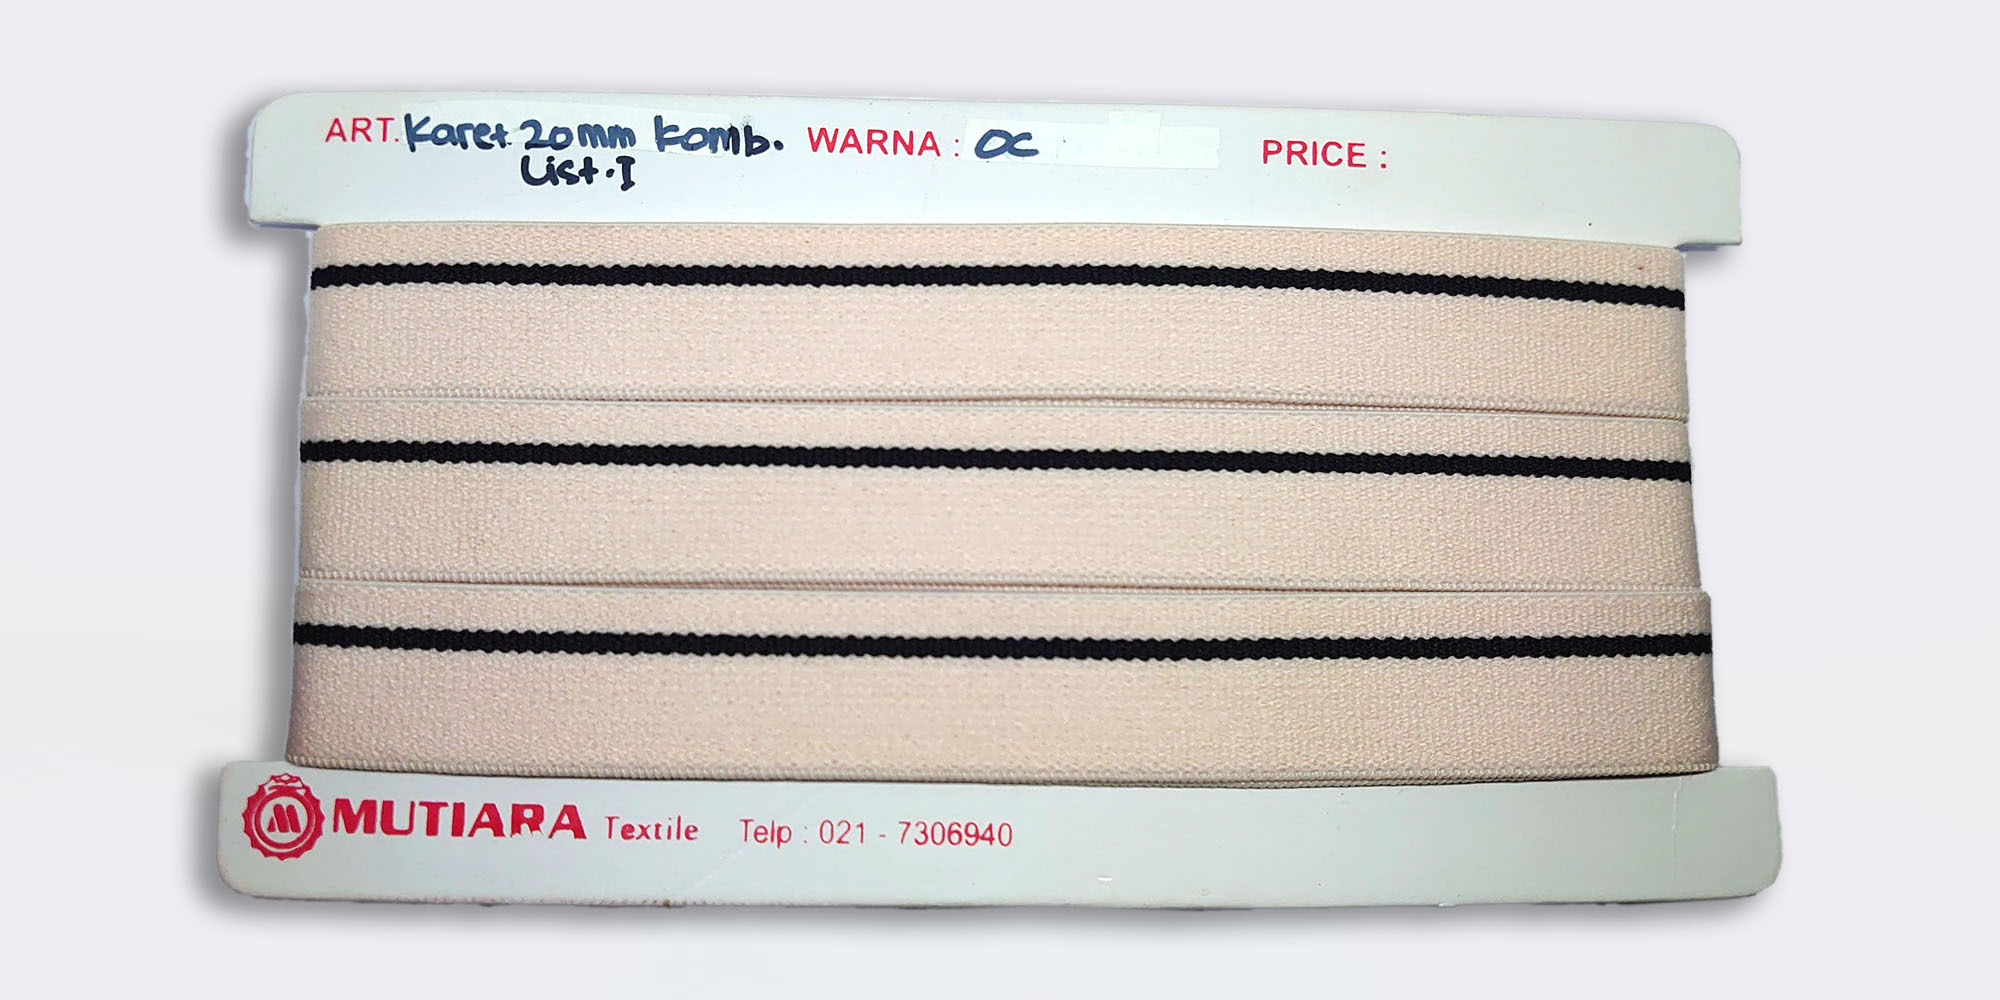 ART. Karet 20mm komb. WARNA : OC PRICE :
List.I
MUTIARA Textile Telp : 021 - 7306940